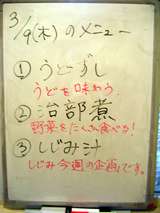 3/9(木)のメニュー
① うどずし
うどを味わう。
② 治部煮
野菜をたくさん食べる!
③ しじみ汁
しじみ今週の企画です。